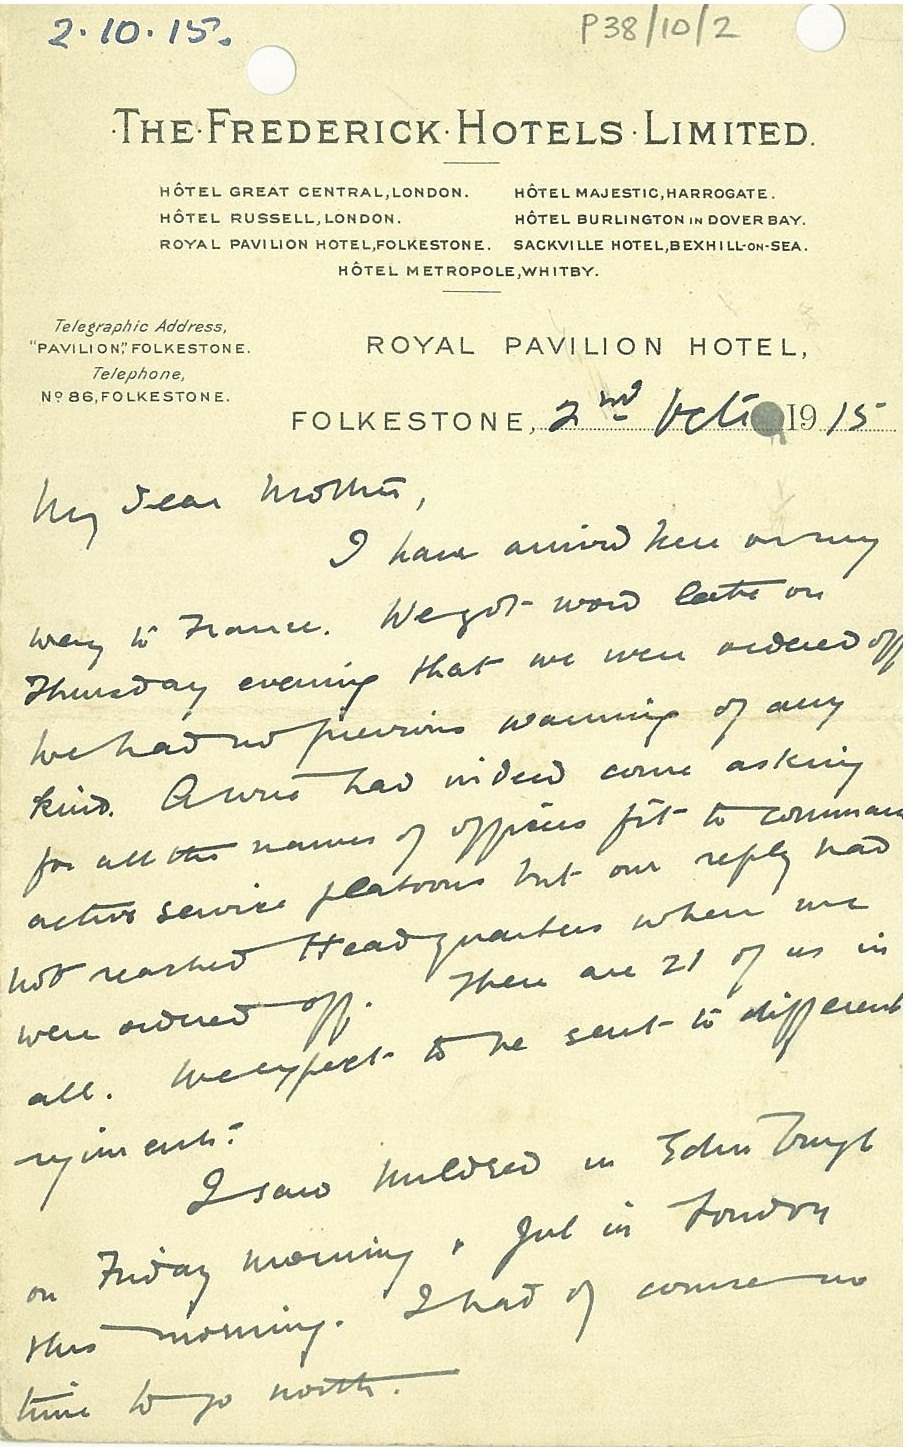 2.10.15.
P38/10/2
·THE·FREDERICK·HOTELS·LIMITED.
HÔTEL GREAT CENTRAL, LONDON. HÔTEL MAJESTIC, HARROGATE.
HÔTEL RUSSELL, LONDON. HÔTEL BURLINGTON IN DOVER BAY.
ROYAL PAVILION HOTEL, FOLKESTONE. SACKVILLE HOTEL, BEXHILL-ON-SEA.
HÔTEL METROPOLE, WHITBY.
Telegraphic Address,
"PAVILION," FOLKESTONE.
Telephone,
Nº 86, FOLKESTONE.
ROYAL PAVILION HOTEL,
FOLKESTONE, 2nd Oct 1915
My dear Mother,
I have arrived here on my
way to France. We got word late on
Thursday evening that we were ordered off
we had no previous warning of any
kind. A wire had indeed come asking
for all the names of officers fit to command
active service platoons but our reply had
not reached Headquarters when we
were ordered off. There are 21 of us in
all. We expect to be sent to different
regiments.
I saw Mildred in Edinburgh
on Friday morning & Jul in London
this morning. I had of course no
time to go north.